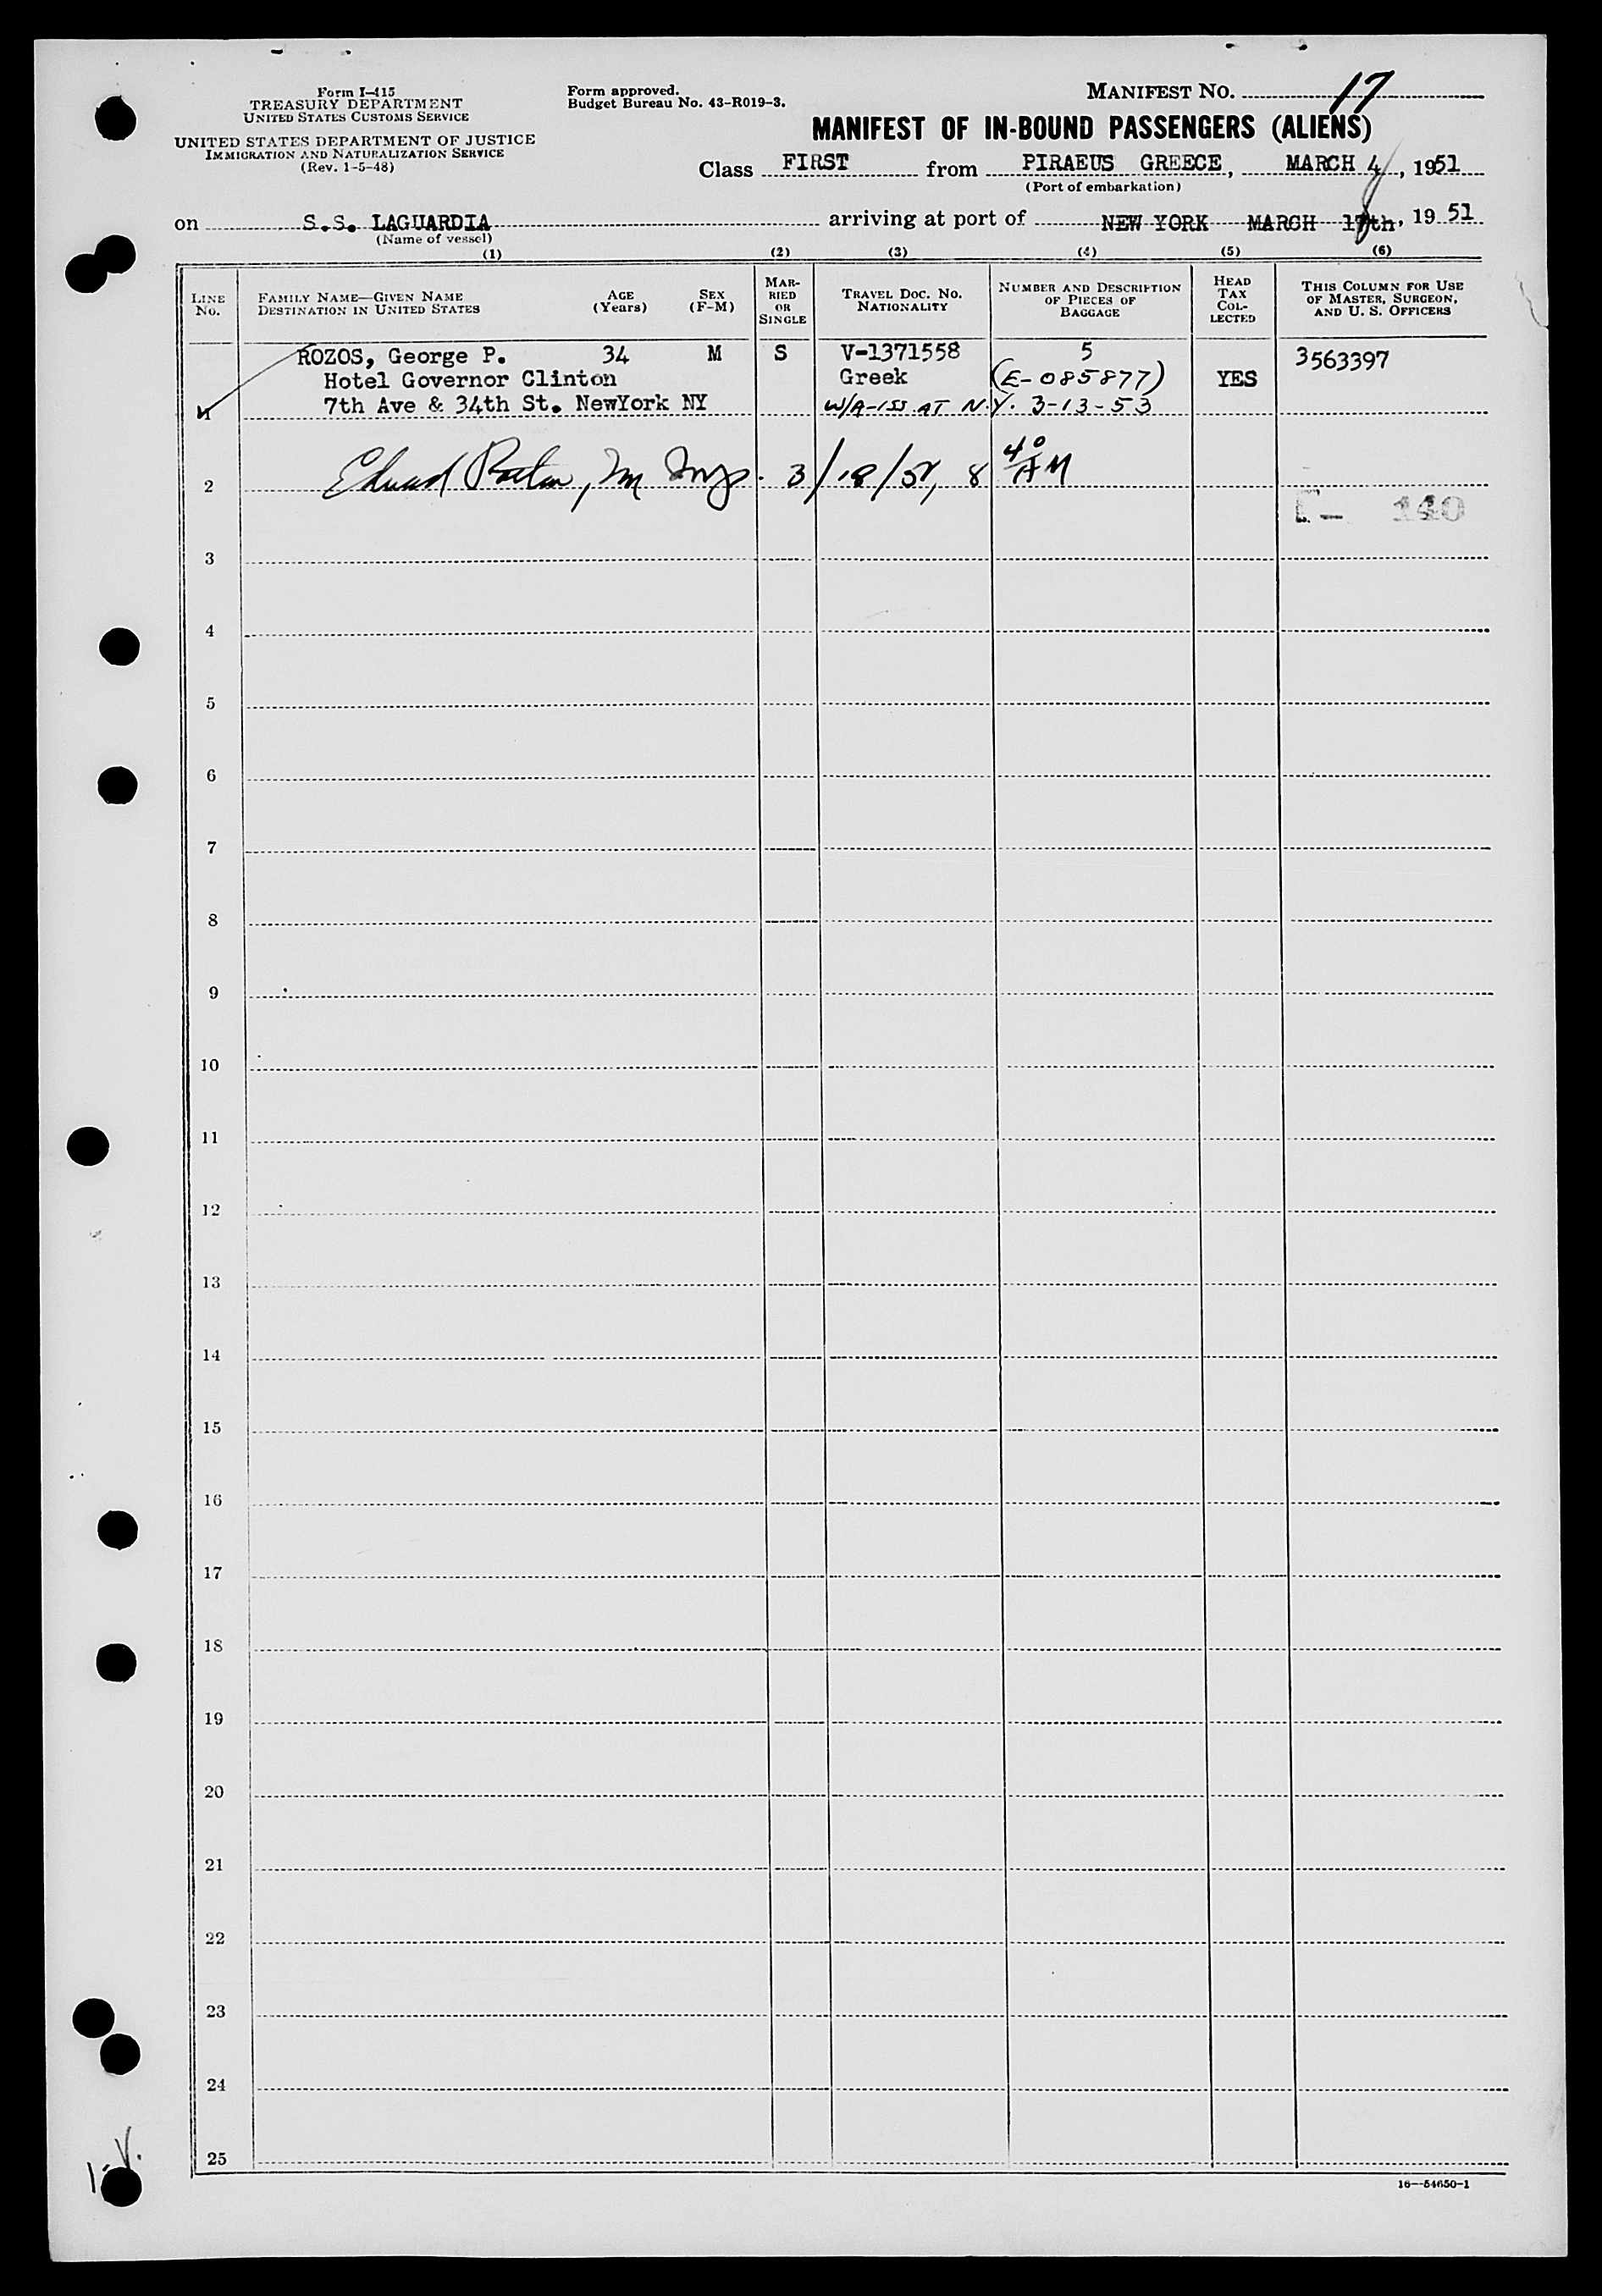 Form I-415
TREASURY DEPARTMENT
UNITED STATES CUSTOMS SERVICE
UNITED STATES DEPARTMENT OF JUSTICE
IMMIGRATION AND NATURALIZATION SERVICE
(Rev. 1-5-48)
Form approved.
Budget Bureau No. 43-R019-3.
MANIFEST NO. 17
MANIFEST OF IN-BOUND PASSENGERS (ALIENS)
Class FIRST from PIRAEUS GREECE, MARCH 4, 1951
(Port of embarkation)
on S.S. LAGUARDIA arriving at port of NEW YORK MARCH 18th, 19 51
(Name of vessel)
(1) (2) (3) (4) (5) (6)
LINE NO. FAMILY NAME—GIVEN NAME DESTINATION IN UNITED STATES AGE (Years) SEX (F-M) MARRIED OR SINGLE TRAVEL DOC. NO. NATIONALITY NUMBER AND DESCRIPTION OF PIECES OF BAGGAGE HEAD TAX COLLECTED THIS COLUMN FOR USE OF MASTER, SURGEON, AND U. S. OFFICERS
ROZOS, George P. 34 M S V-1371558 5 3563397
Hotel Governor Clinton Greek (E-085877) YES
1 7th Ave & 34th St. NewYork NY W/A-ISS. AT N.Y. 3-13-53
2 3/18/51, 8 40 AM
140
3
4
5
6
7
8
9
10
11
12
13
14
15
16
17
18
19
20
21
22
23
24
25
16—54650-1